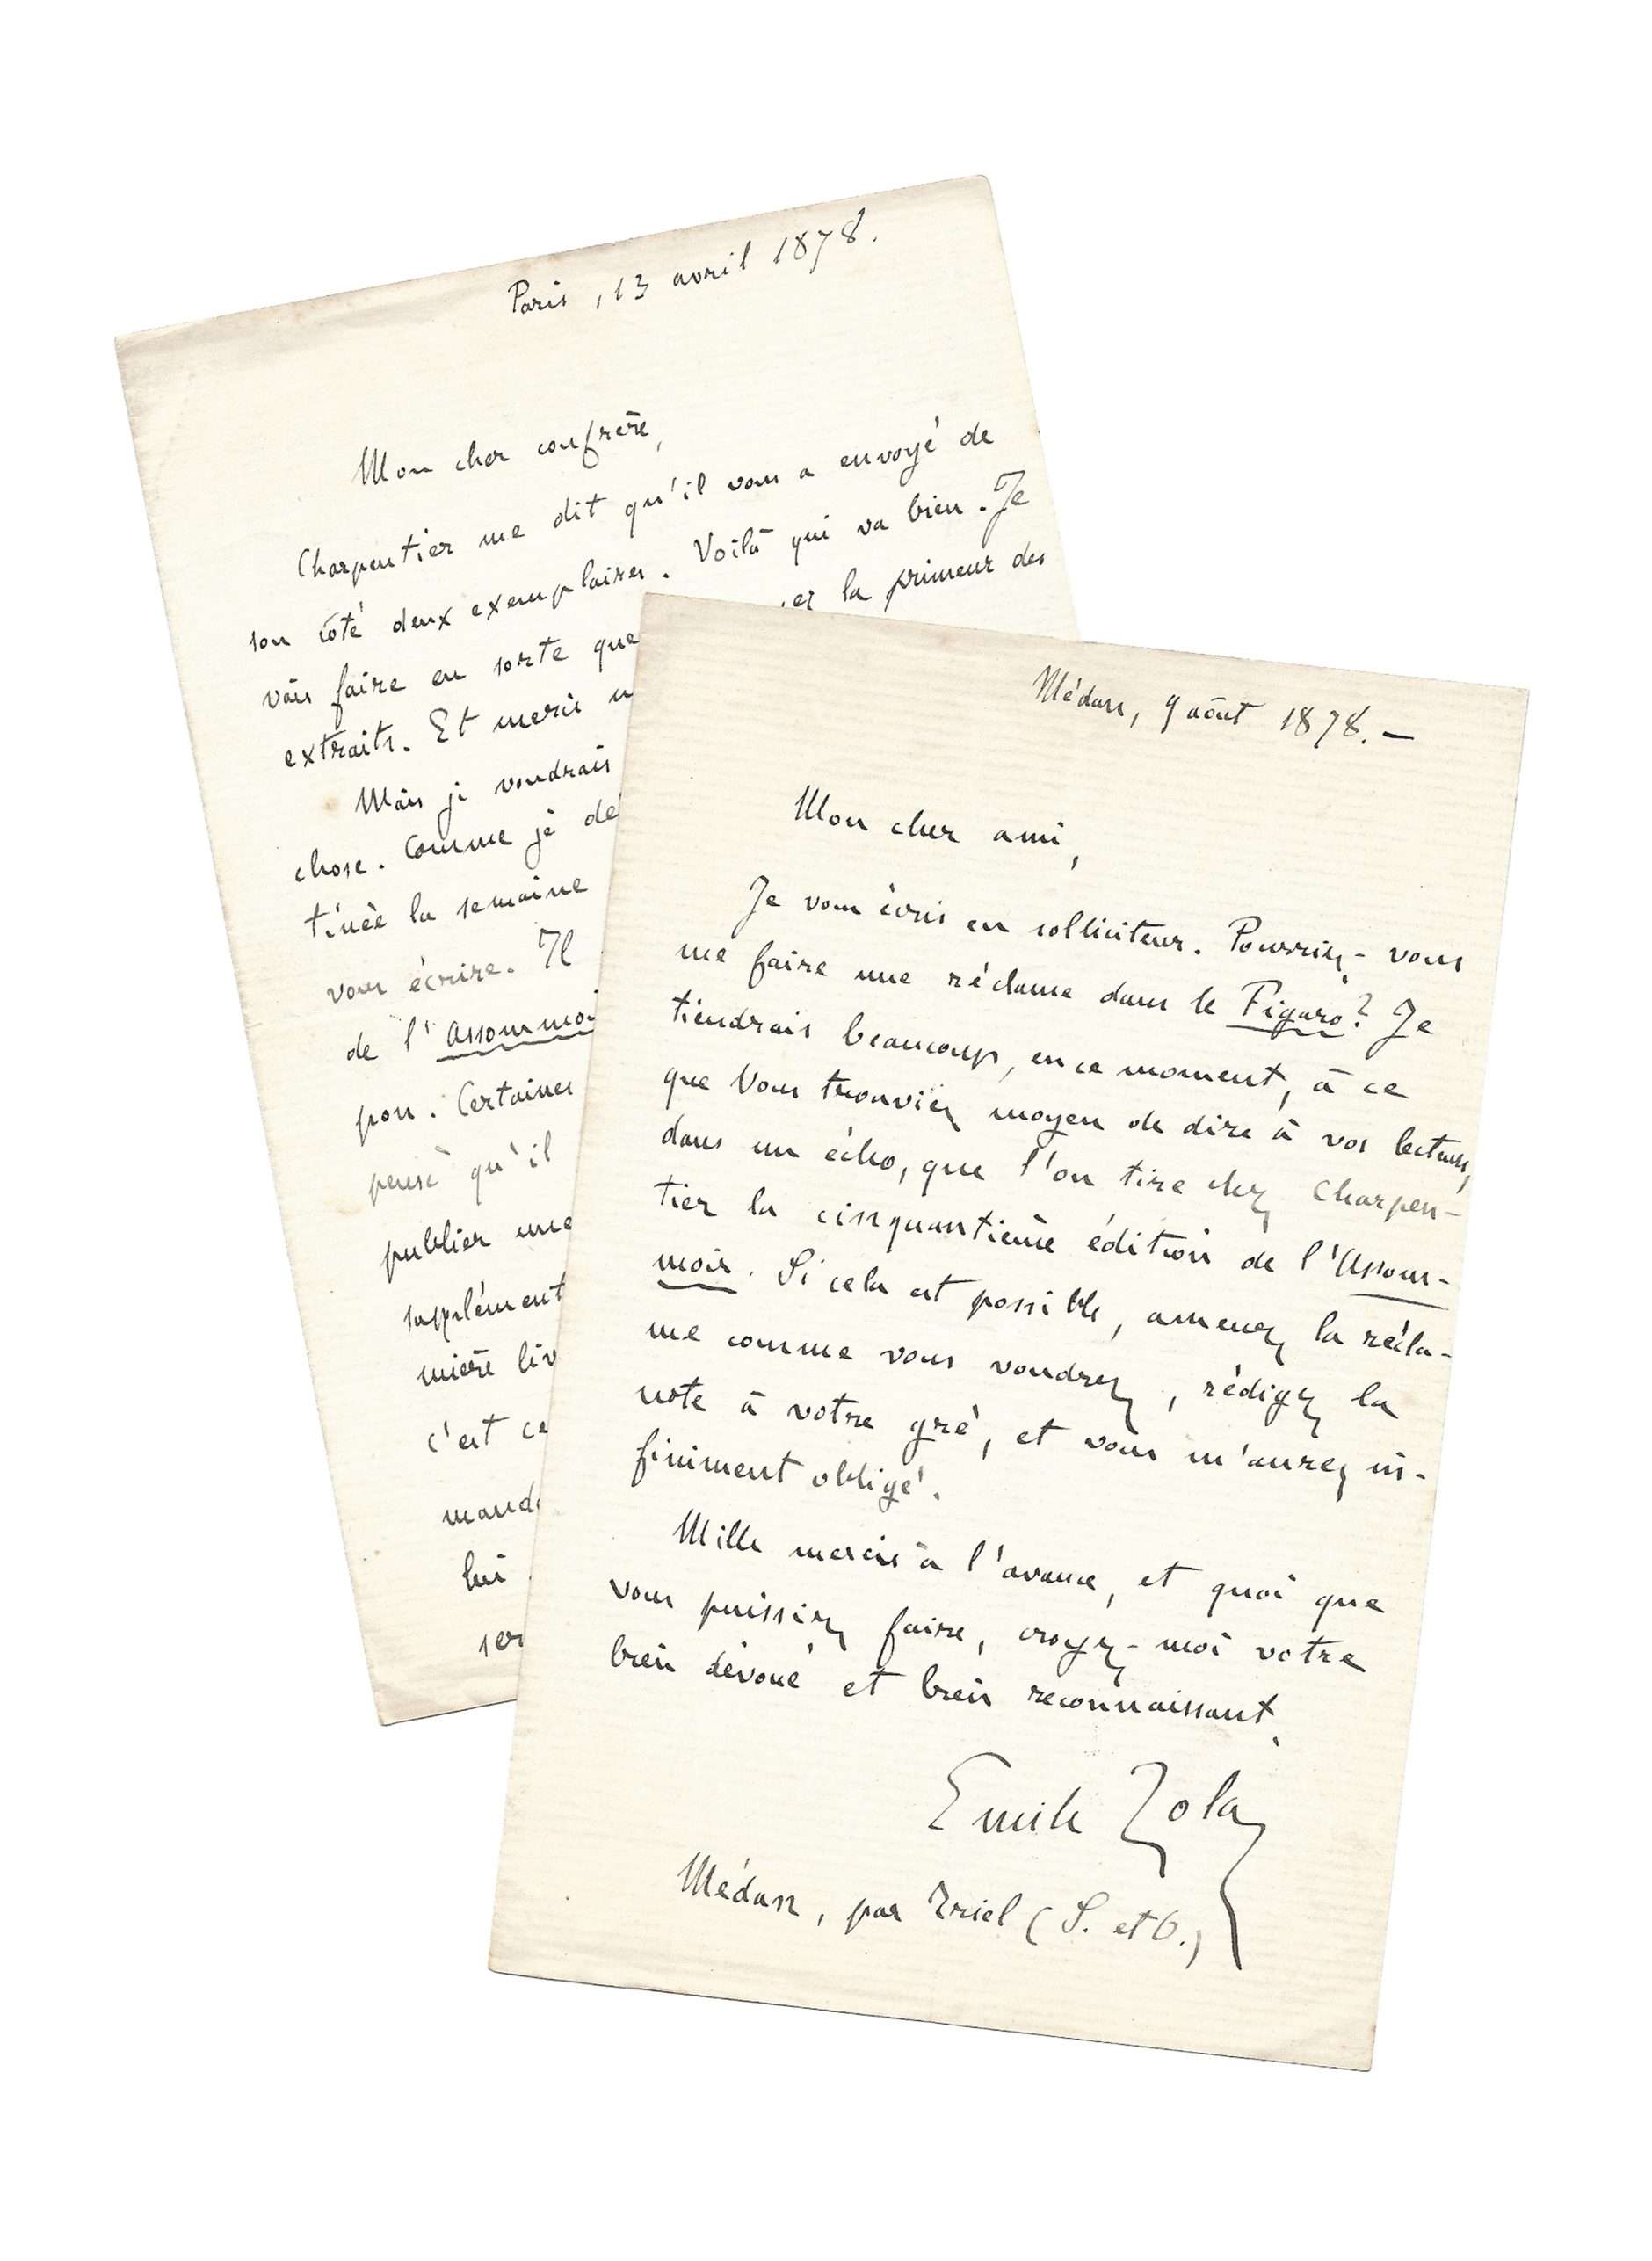 Paris, 13 avril 1878.
Mon cher confrère,
Charpentier me dit qu'il vous a envoyé de
son côté deux exemplaires. Voilà qui va bien. Je
vais faire en sorte que
er la primeur des
extraits. Et merci
Mais je voudrais
chose. Comme je dé
tinée la semaine
vous écrire. Il
de l'Assommoi
pon. Certaines
pensé qu'il
publier une
supplément
mière liv
c'est ce
mande
lui
ser
Médan, 9 août 1878.—
Mon cher ami,
Je vous écris en solliciteur. Pourriez-vous
me faire une réclame dans le Figaro? Je
tiendrais beaucoup, en ce moment, à ce
que vous trouviez moyen de dire à vos lecteurs,
dans un écho, que l'on tire chez Charpen-
tier la cinquantième édition de l'Assom-
moir. Si cela est possible, amenez la récla-
me comme vous voudrez, rédigez la
note à votre gré, et vous m'aurez in-
finiment obligé.
Mille mercis à l'avance, et quoi que
vous puissiez faire, croyez-moi votre
bien dévoué et bien reconnaissant.
Emile Zola
Médan, par Triel (S. et O.)